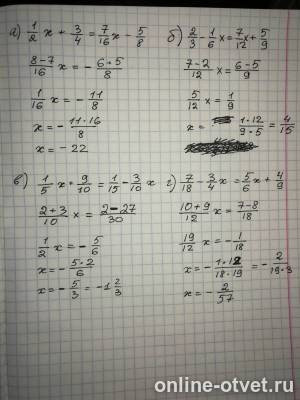 а) 1/2 x + 3/4 = 7/16 x - 5/8
8-7/16 x = - 6+5/8
1/16 x = - 11/8
x = - 11·16/8
x = - 22
б) 2/3 - 1/6 x = 7/12 x + 5/9
7-2/12 x = 6-5/9
5/12 x = 1/9
x = 1·12/9·5 = 4/15
в) 1/5 x + 9/10 = 1/15 - 3/10 x
2+3/10 x = 2-27/30
1/2 x = - 5/6
x = - 5·2/6
x = - 5/3 = -1 2/3
г) 7/18 - 3/4 x = 5/6 x + 4/9
10+9/12 x = 7-8/18
19/12 x = - 1/18
x = - 1·12/18·19 = - 2/19·3
x = - 2/57
online-otvet.ru